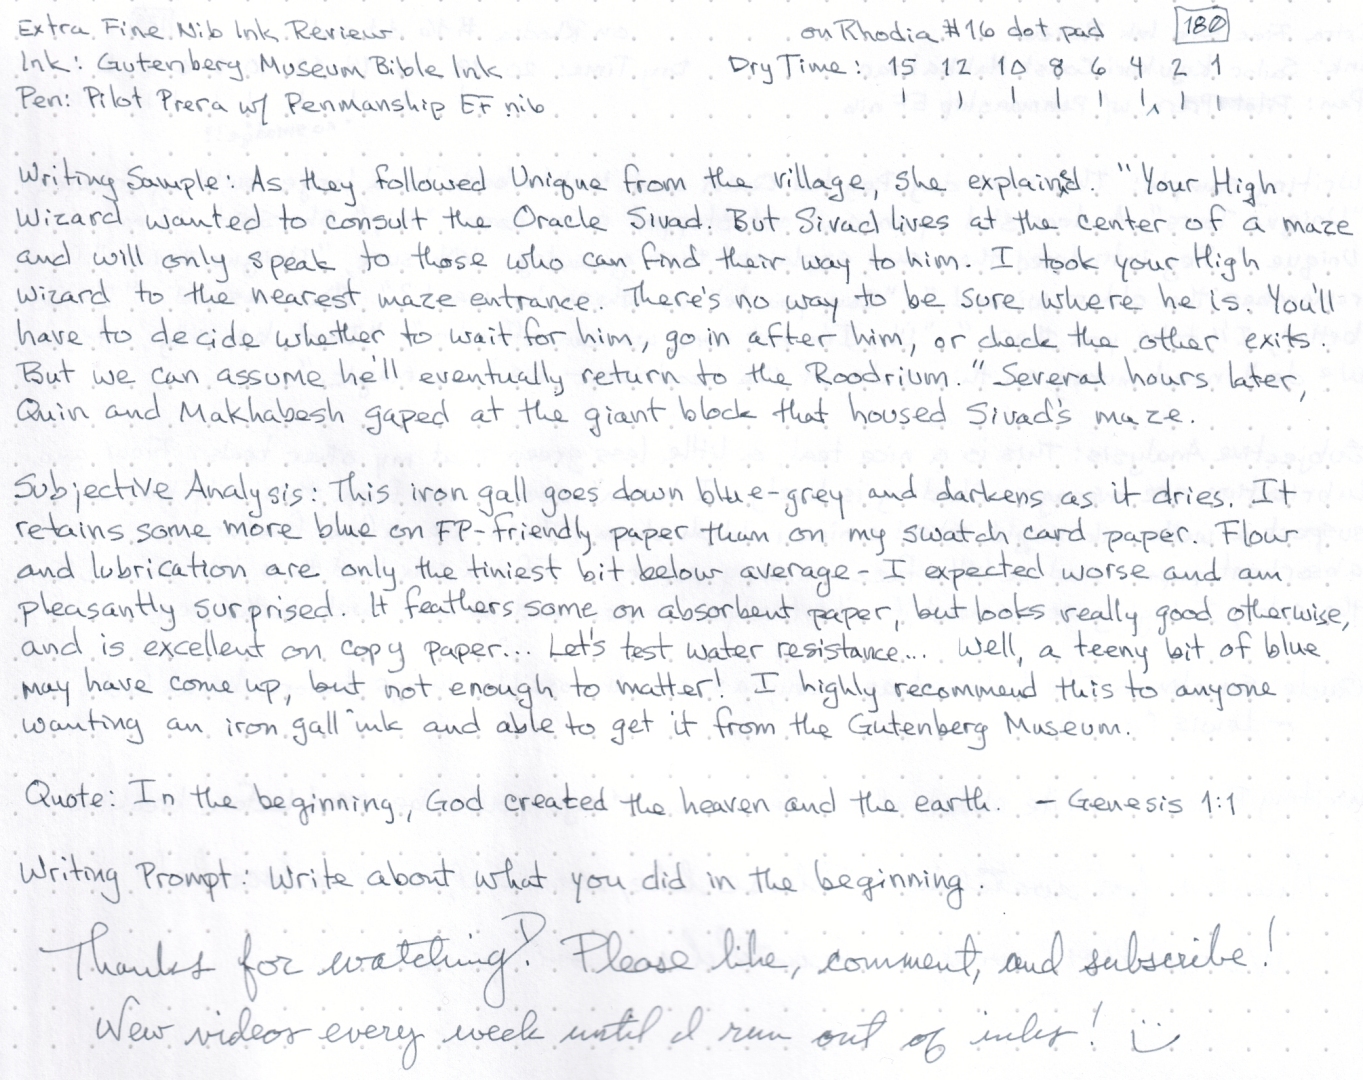 Extra Fine Nib Ink Review on Rhodia #16 dot pad 180
Ink: Gutenberg Museum Bible Ink Dry Time: 15 12 10 8 6 4 2 1
Pen: Pilot Prera w/ Penmanship EF nib
Writing Sample: As they followed Unique from the village, she explained. "Your High
Wizard wanted to consult the Oracle Sivad. But Sivad lives at the center of a maze
and will only speak to those who can find their way to him. I took your High
Wizard to the nearest maze entrance. There's no way to be sure where he is. You'll
have to decide whether to wait for him, go in after him, or check the other exits.
But we can assume he'll eventually return to the Roodrium." Several hours later,
Quin and Makhabesh gaped at the giant block that housed Sivad's maze.
Subjective Analysis: This iron gall goes down blue-grey and darkens as it dries. It
retains some more blue on FP-friendly paper than on my swatch card paper. Flow
and lubrication are only the tiniest bit below average - I expected worse and am
pleasantly surprised. It feathers some on absorbent paper, but looks really good otherwise,
and is excellent on copy paper... Let's test water resistance... Well, a teeny bit of blue
may have come up, but not enough to matter! I highly recommend this to anyone
wanting an iron gall ink and able to get it from the Gutenberg Museum.
Quote: In the beginning, God created the heaven and the earth. - Genesis 1:1
Writing Prompt: Write about what you did in the beginning.
Thanks for watching! Please like, comment, and subscribe!
New videos every week until I run out of inks! :)